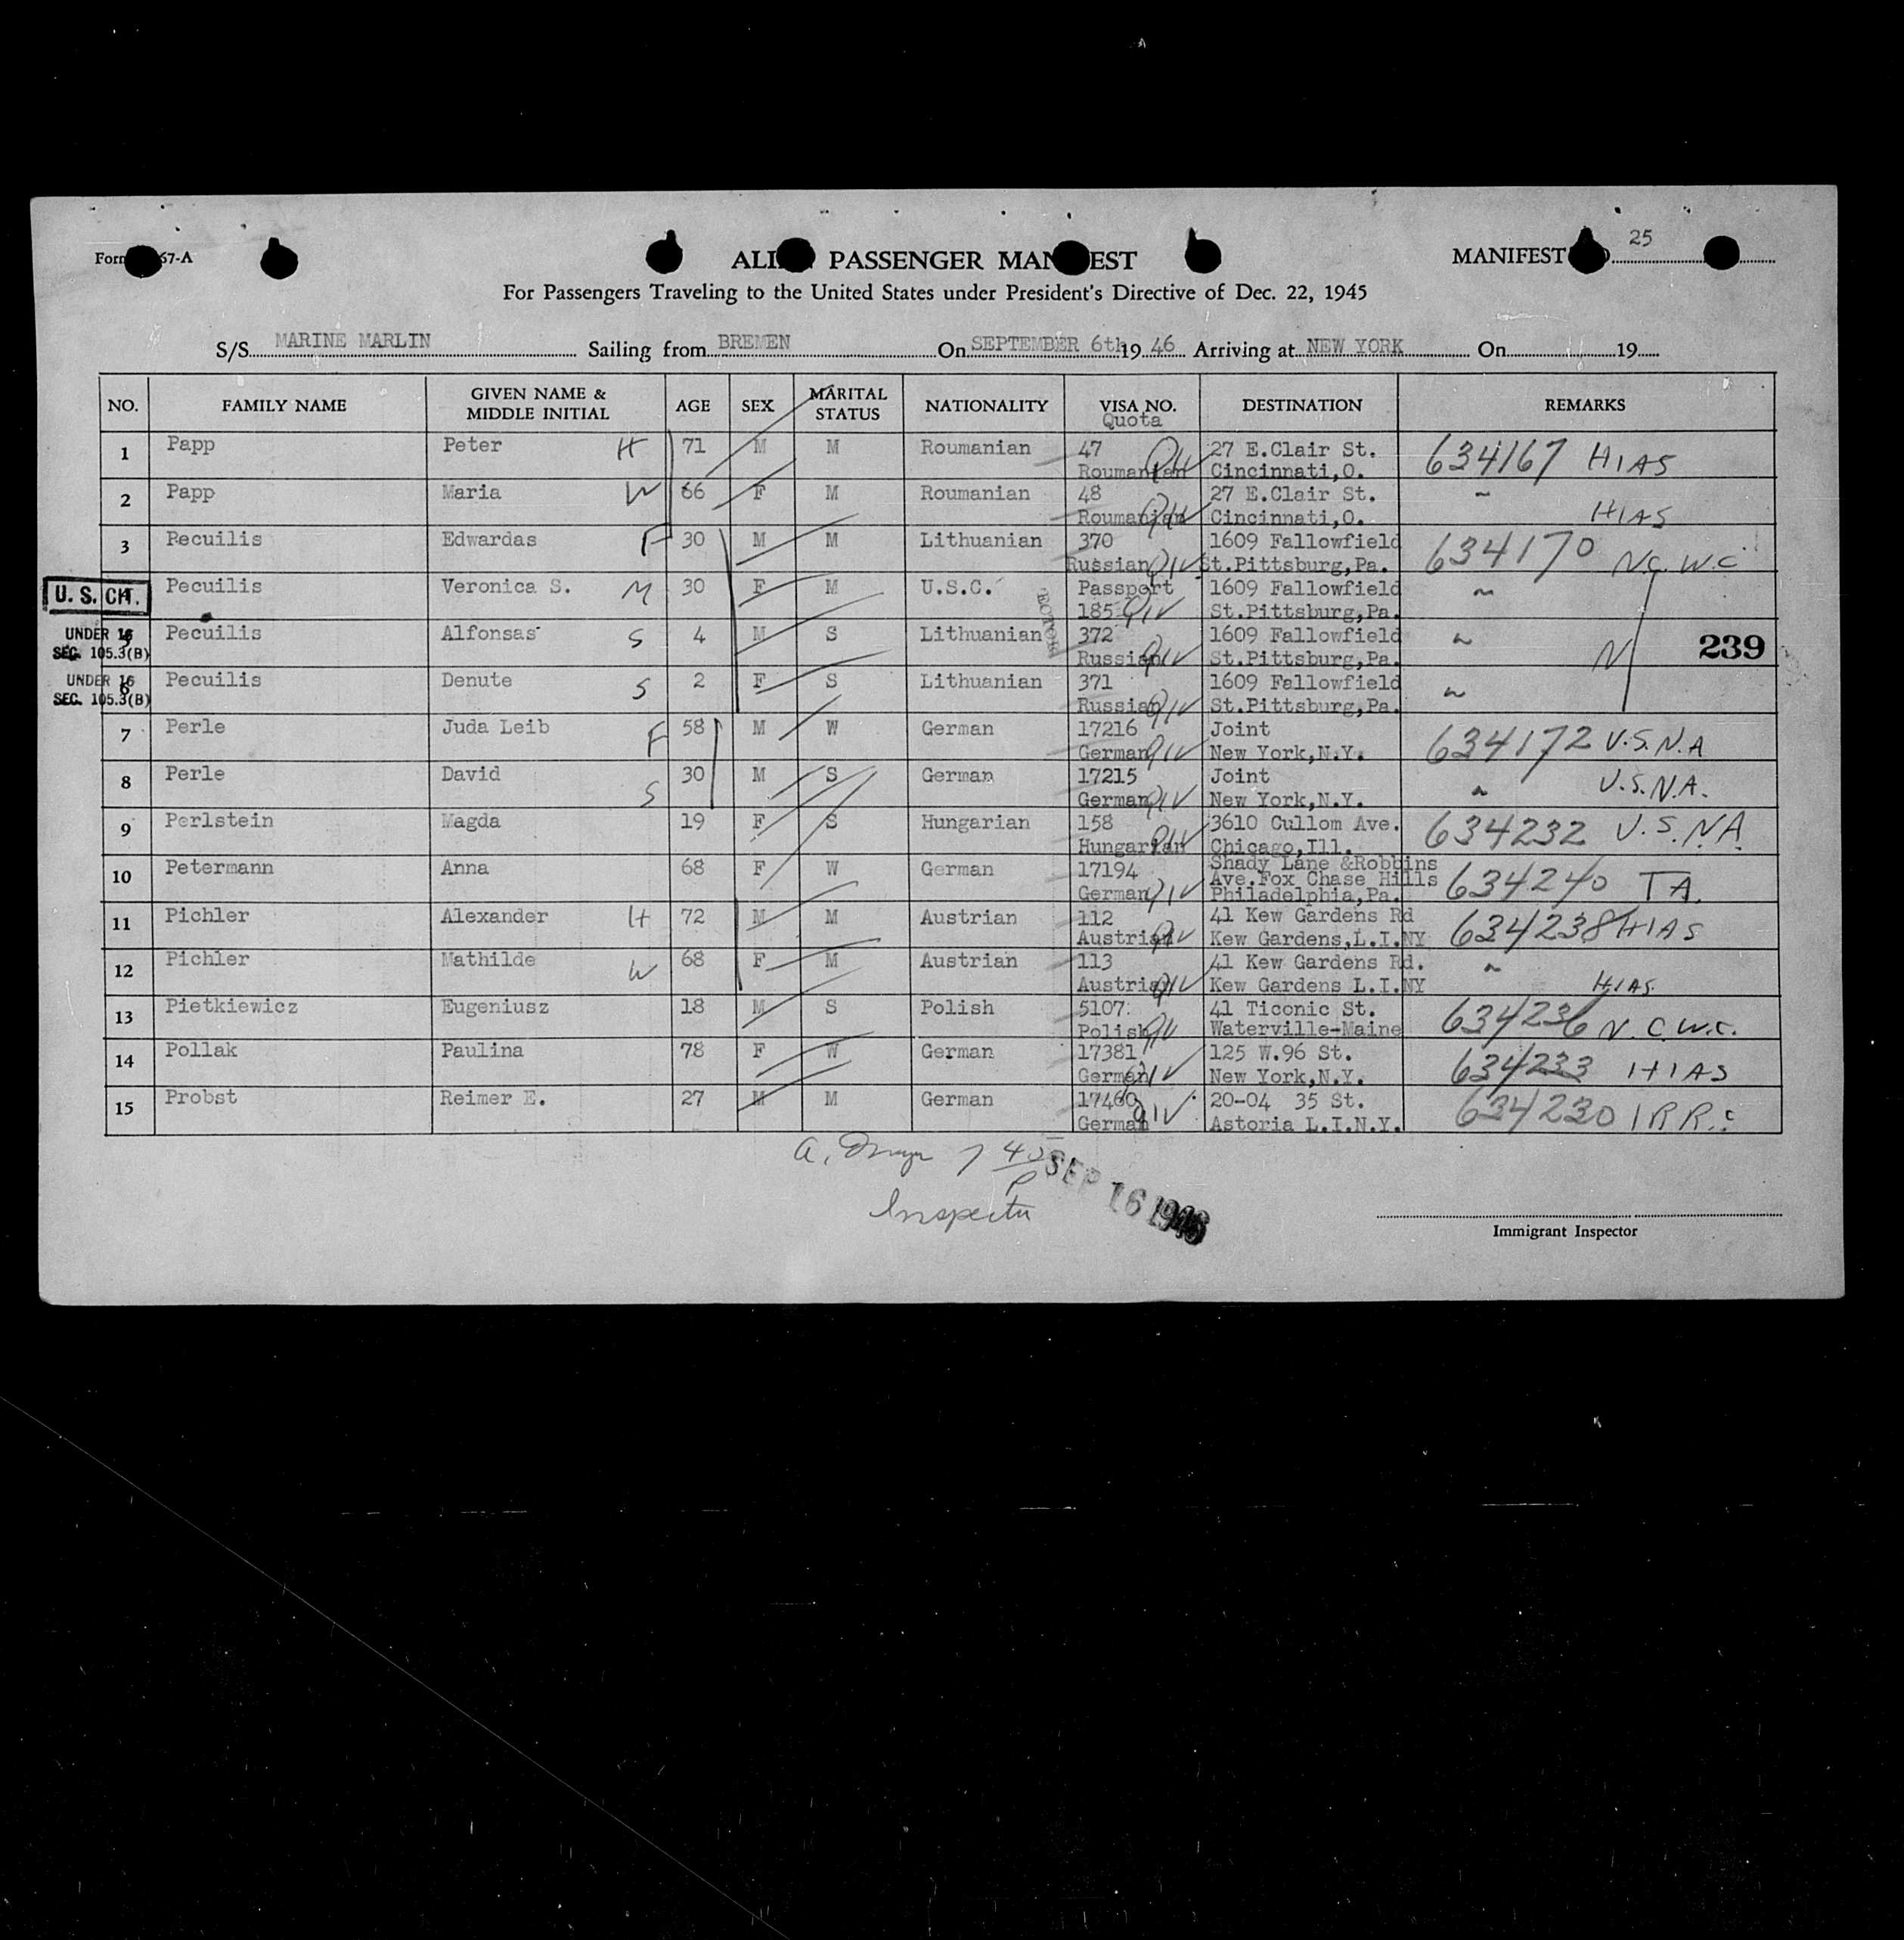 Form 67-A
ALIEN PASSENGER MANIFEST
MANIFEST NO. 25
For Passengers Traveling to the United States under President's Directive of Dec. 22, 1945
S/S MARINE MARLIN Sailing from BREMEN On SEPTEMBER 6th 19 46 Arriving at NEW YORK On 19
NO. FAMILY NAME GIVEN NAME & MIDDLE INITIAL AGE SEX MARITAL STATUS NATIONALITY VISA NO. Quota DESTINATION REMARKS
1 Papp Peter H 71 M M Roumanian 47 27 E.Clair St. 634167 HIAS
Roumanian Cincinnati,O.
2 Papp Maria W 66 F M Roumanian 48 27 E.Clair St. "
Roumanian Cincinnati,O. HIAS
3 Pecuilis Edwardas F 30 M M Lithuanian 370 1609 Fallowfield 634170 N.C.W.C
Russian St.Pittsburg,Pa.
U. S. CIT.
4 Pecuilis Veronica S. M 30 F M U.S.C. Passport 1609 Fallowfield "
185 St.Pittsburg,Pa.
UNDER 16
SEC. 105.3(B)
5 Pecuilis Alfonsas S 4 M S Lithuanian 372 1609 Fallowfield " N 239
Russian St.Pittsburg,Pa.
UNDER 16
SEC. 105.3(B)
6 Pecuilis Denute S 2 F S Lithuanian 371 1609 Fallowfield "
Russian St.Pittsburg,Pa.
7 Perle Juda Leib F 58 M W German 17216 Joint 634172 U.S.N.A
German New York,N.Y.
8 Perle David S 30 M S German 17215 Joint " U.S.N.A.
German New York,N.Y.
9 Perlstein Magda 19 F S Hungarian 158 3610 Cullom Ave. 634232 U.S.N.A.
Hungarian Chicago,Ill.
10 Petermann Anna 68 F W German 17194 Shady Lane &Robbins 634240 T.A.
Ave.Fox Chase Hills
German Philadelphia,Pa.
11 Pichler Alexander H 72 M M Austrian 112 41 Kew Gardens Rd 634238 HIAS
Austrian Kew Gardens,L.I.NY
12 Pichler Mathilde W 68 F M Austrian 113 41 Kew Gardens Rd. "
Austrian Kew Gardens L.I.NY HIAS.
13 Pietkiewicz Eugeniusz 18 M S Polish 5107 41 Ticonic St. 634236 N.C.W.C.
Polish Waterville-Maine
14 Pollak Paulina 78 F W German 17381 125 W.96 St. 634233 HIAS
German New York,N.Y.
15 Probst Reimer E. 27 M M German 17460 20-04 35 St. 634230 I R R.C
German Astoria L.I.N.Y.
SEP 16 1946
Inspector
Immigrant Inspector